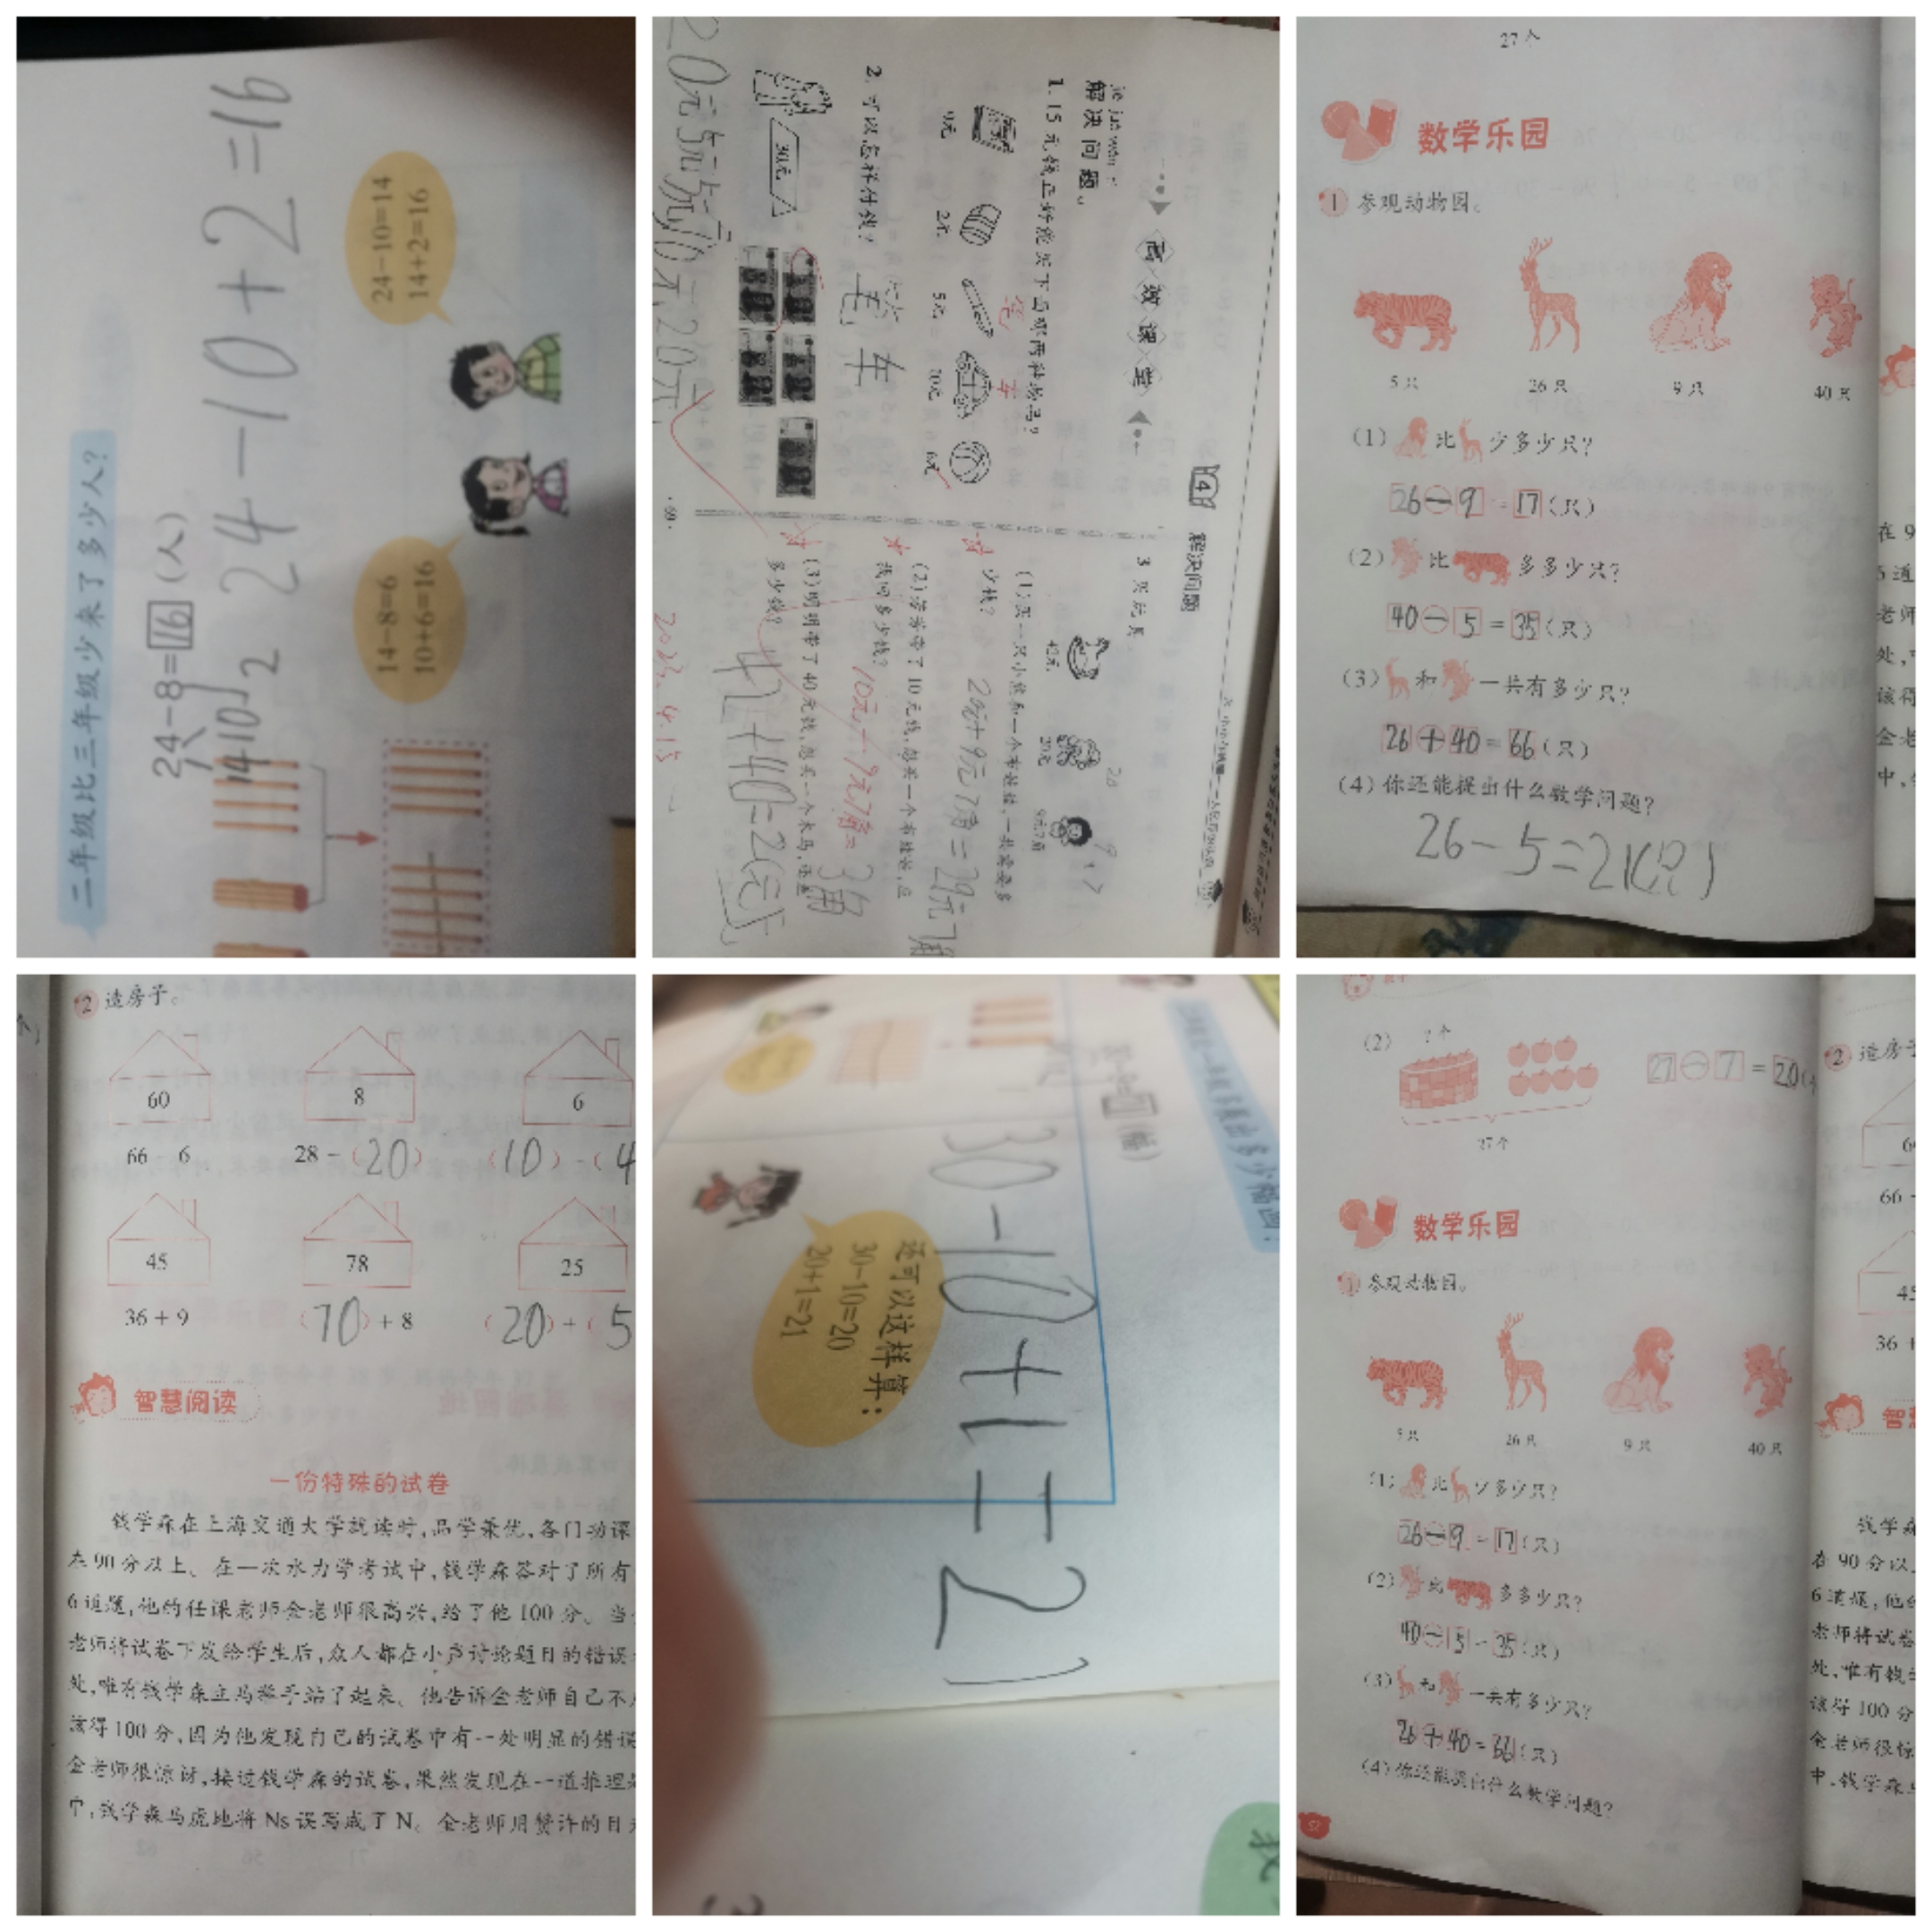 二年级比三年级少来了多少人?
24-8=16(人)
14 10 2
24-10+2=16
14-8=6
10+6=16
24-10=14
14+2=16
高效课堂
解决问题。
1. 15元钱正好能买下面哪两种物品?
笔 车
2元
5元
10元
6元
2. 可以怎样付钱?
30元
20元5元5元10元20元
·69·
4 解决问题
3 买玩具
42元
20元
9元7角
少钱?
20元+9元7角=29元7角
(2)芳芳带了10元钱,想买一个布娃娃,应
找回多少钱?
10元-9元7角=3角
(3)明明带了40元钱,想买一个木马,还差
多少钱?
42+40=2(元)
27个
数学乐园
1 参观动物园。
5只
26只
9只
40只
(1) 比 少多少只?
26-9=17(只)
(2) 比 多多少只?
40-5=35(只)
(3) 和 一共有多少只?
26+40=66(只)
(4)你还能提出什么数学问题?
26-5=21(只)
2 造房子。
60
8
6
66-6
28-(20)
(10)-(4
45
78
25
36+9
(70)+8
(20)+(5
智慧阅读
一份特殊的试卷
钱学森在上海交通大学就读时,品学兼优,各门功课
在90分以上。在一次水力学考试中,钱学森答对了所有
6道题,他的任课老师金老师很高兴,给了他100分。当
老师将试卷下发给学生后,众人都在小声讨论题目的错误
处,唯有钱学森立马举手站了起来。他告诉金老师自己不
该得100分,因为他发现自己的试卷中有一处明显的错误
金老师很惊讶,接过钱学森的试卷,果然发现在一道推理
中,钱学森马虎地将Ns误写成了N。金老师用赞许的目
30-10+1=21
还可以这样算:
30-10=20
20+1=21
(2)
?个
27-7=20(
27个
数学乐园
1 参观动物园。
5只
26只
9只
40只
(1) 比 少多少只?
26-9=17(只)
(2) 比 多多少只?
40-5=35(只)
(3) 和 一共有多少只?
26+40=66(只)
(4)你还能提出什么数学问题?
2 造房子
66-
36+
钱学森
在90分以
6道题,他
老师将试卷
处,唯有钱
该得100分
金老师很惊
中,钱学森